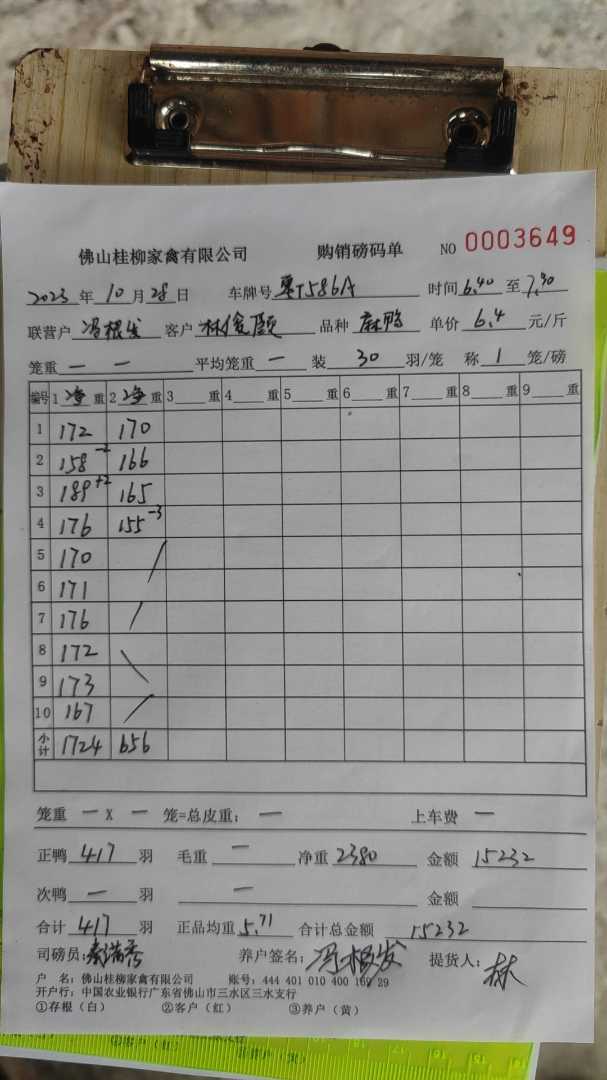 佛山桂柳家禽有限公司 购销磅码单 NO 0003649
2023年10月28日 车牌号 粤T586A 时间6.40至7.90
联营户 冯根发 客户 林俊颐 品种 麻鸭 单价 6.4 元/斤
笼重 — — 平均笼重 — 装 30 羽/笼 称 1 笼/磅
编号 1 净 重 2 净 重 3 重 4 重 5 重 6 重 7 重 8 重 9 重
1 172 170
2 158⁻² 166
3 189⁺² 165
4 176 155⁻³
5 170
6 171
7 176
8 172
9 173
10 167
小计 1724 656
笼重 — X — 笼=总皮重: — 上车费 —
正鸭 417 羽 毛重 — 净重 2380 金额 15232
次鸭 — 羽 — 金额
合计 417 羽 正品均重 5.71 合计总金额 15232
司磅员: 养户签名: 冯根发 提货人: 林
户 名: 佛山桂柳家禽有限公司 账号: 444 401 010 400 169 29
开户行: 中国农业银行广东省佛山市三水区三水支行
①存根（白） ②客户（红） ③养户（黄）